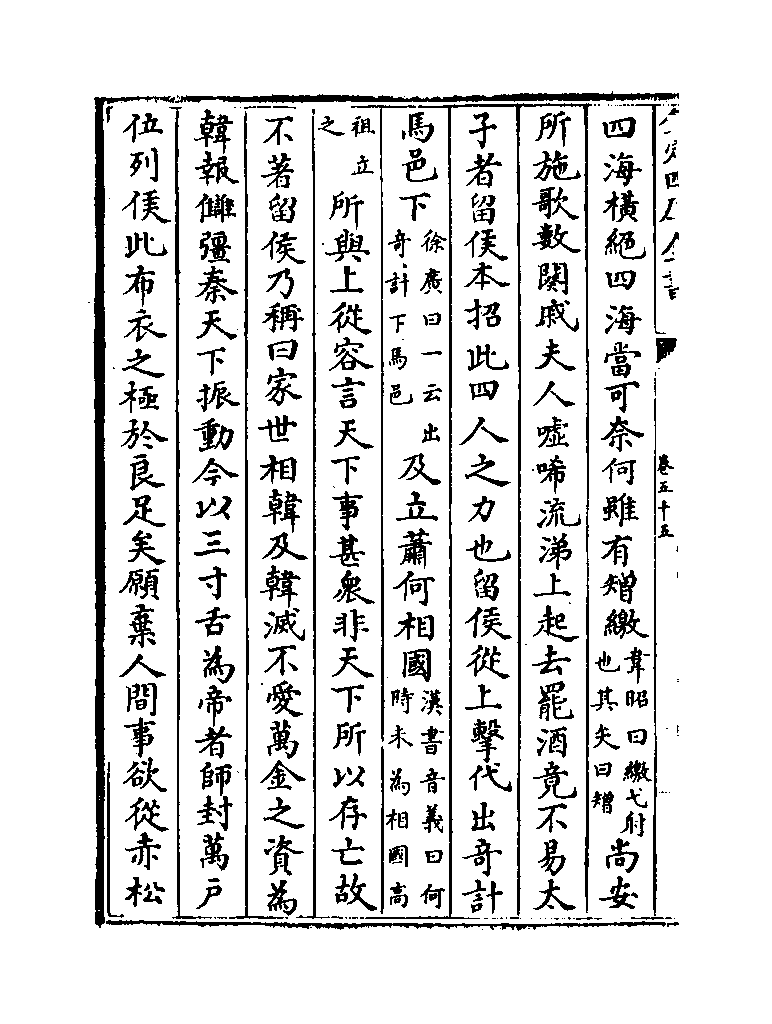 四海橫絕四海當可奈何雖有矰繳韋昭曰繳弋射也其矢曰矰尚安
所施歌數闋戚夫人噓唏流涕上起去罷酒竟不易太
子者留侯本招此四人之力也留侯從上擊代出奇計
馬邑下徐廣曰一云出奇計下馬邑及立蕭何相國漢書音義曰何時未為相國高
祖立之所與上從容言天下事甚衆非天下所以存亡故
不著留侯乃稱曰家世相韓及韓滅不愛萬金之資為
韓報讎彊秦天下振動今以三寸舌為帝者師封萬戶
位列侯此布衣之極於良足矣願棄人間事欲從赤松
卷五十五